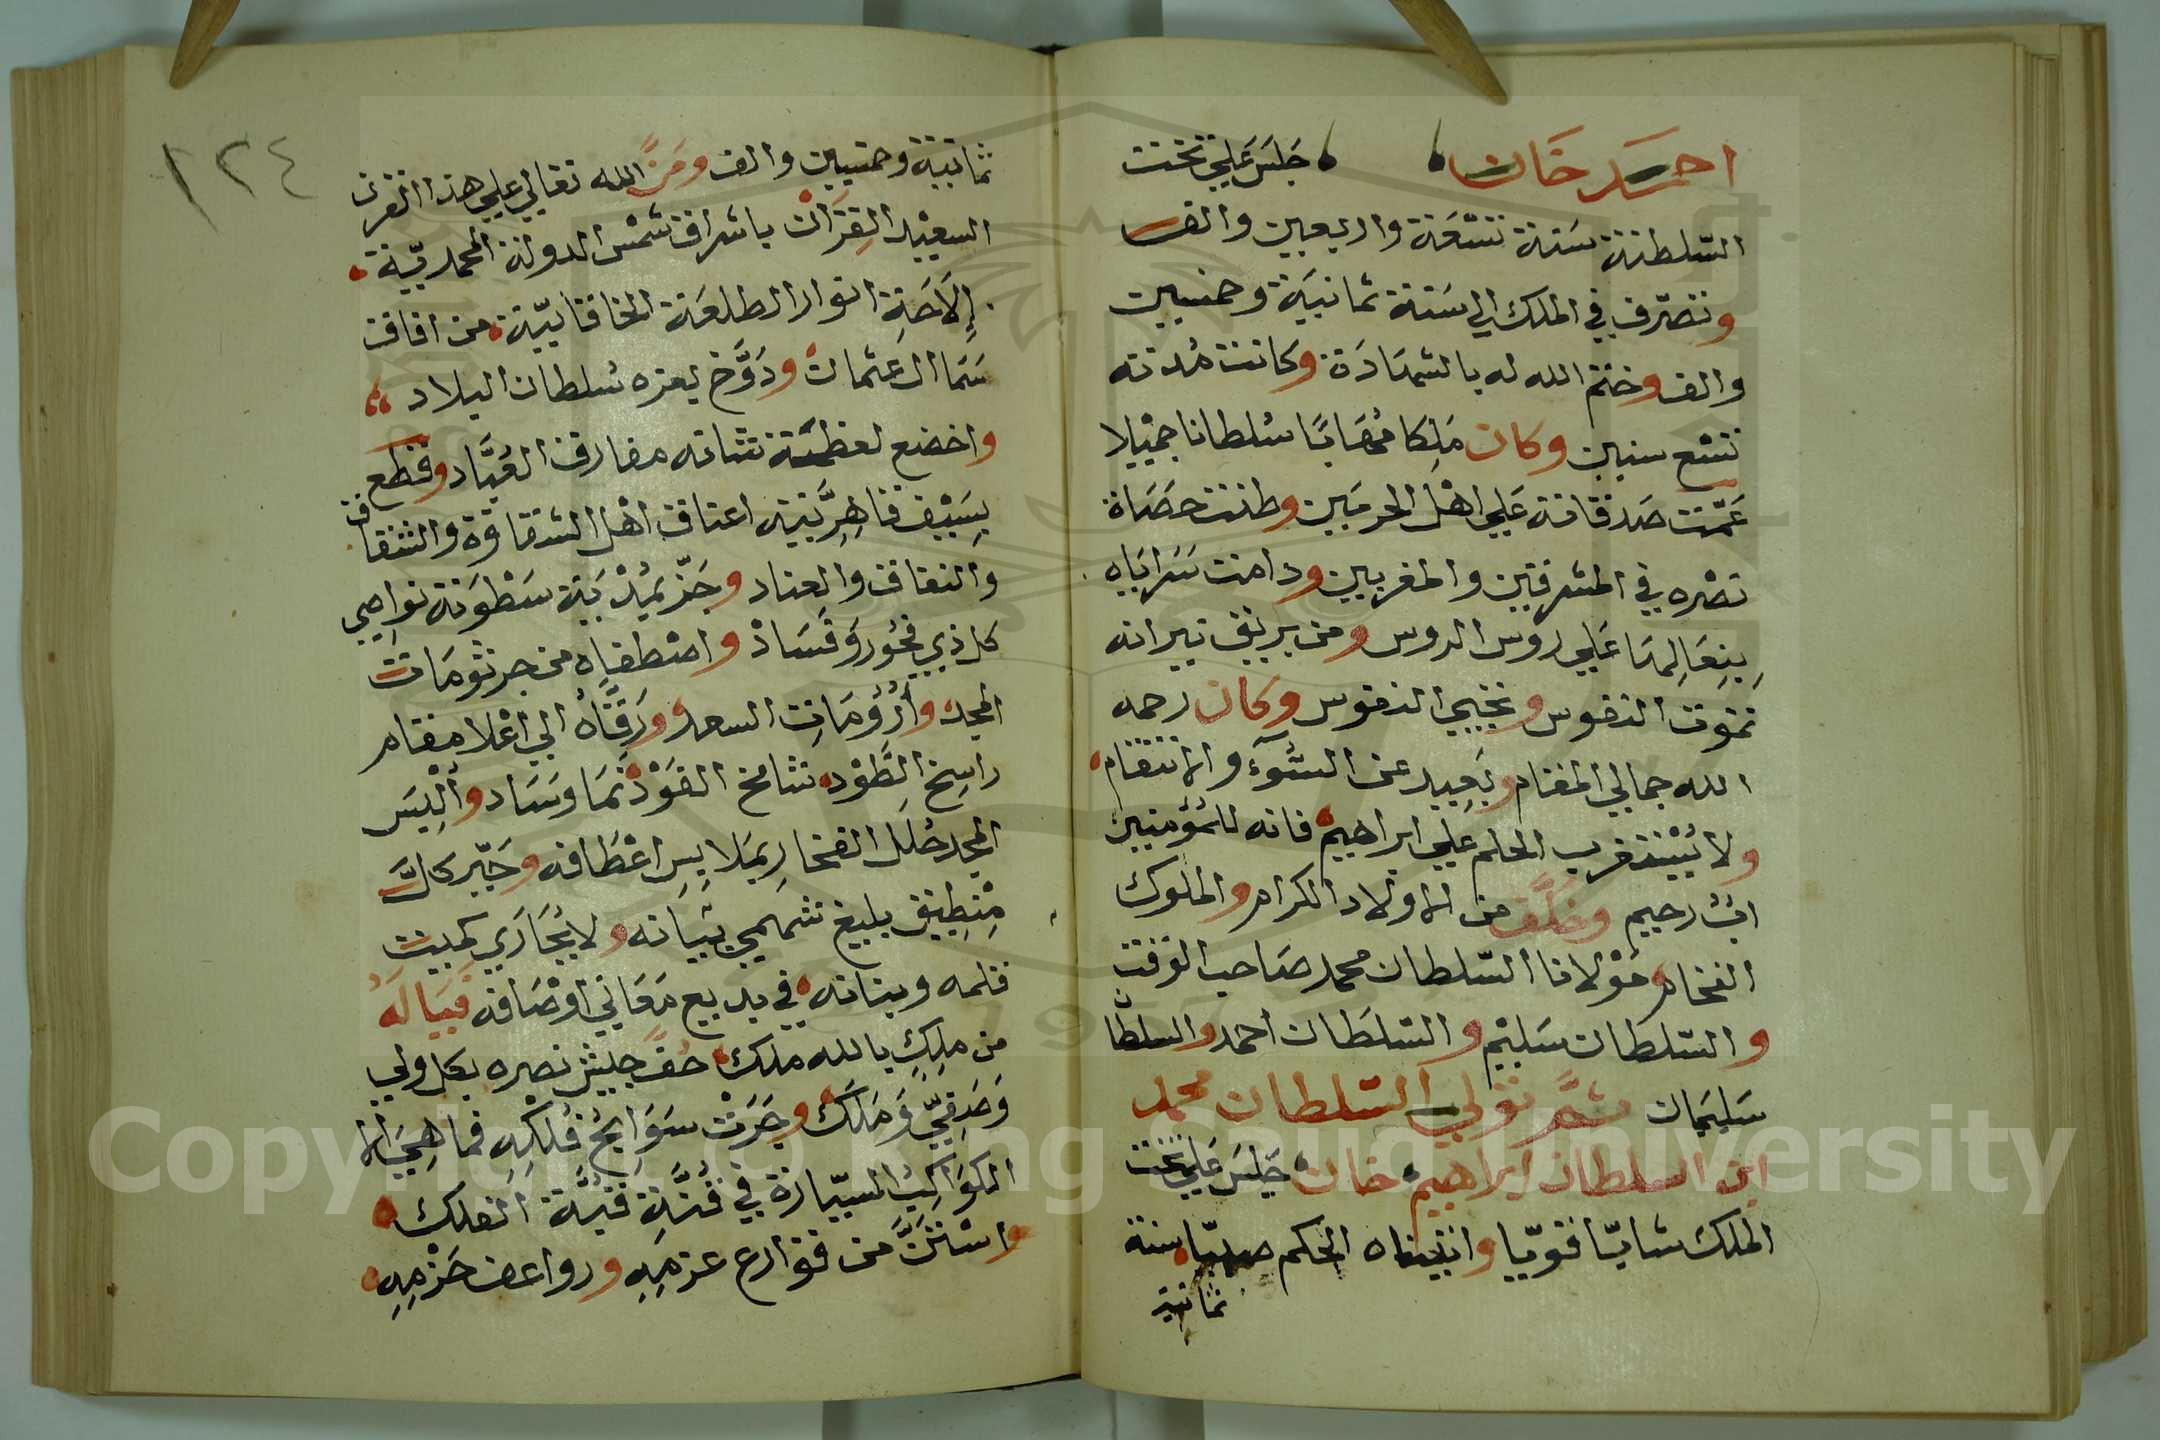 احمد خان جَلَسَ عَلي تخت
السّلطنة سَنة تسْعَة واربعين والف
وتصرّف في الملك الي سَنة ثمانيَة وخمسين
والف وختم الله له بالشهَادَة وكانت مُدته
تسْع سنين وكان مَلِكا مُهَابًا سُلطانا جميْلا
عَمّت صَدقاته عَلي اهْل الحرمَين وطنت حصَاة
نصْره في المشرقين والمغربين ودامت سَرايَاه
بِنِعَالِهَا عَلي روس الروس ومن بريق نيرانه
تموت النفوس وتحيي النفوس وكان رحمه
الله جمالي المقام وبَعِيد عن السُّوَء والانتقام
ولا يُسْتغرب الحلم علي ابراهيم فانه للمُؤمنين
ابٌ رحيم وخلَّف من الاولاد الكرام والملوك
الفخام مَوْلانا السّلطان محمد صَاحب الوَقت
والسّلطان سَليْم والسّلطَان احمد والسلطان
سَليمان ثمَّ تولي السّلطان محمد
ابن السلطان ابراهيم خان جَلسَ عَلي تخت
الملك شابّا قويّا واتيناه الحكم صبيّا سنة
ثمانية
١٢٤
ثمانية وخمسين والف ومَنَّ الله تعالي علي هذا القرن
السعيْد القِرَان باشراق شمْس الدولة المحمديّة
إلاَحَةِ انوار الطلعَة الخاقانيّة من افاق
سَمَا ال عثمان ودَوَّخ لعزه سُلطان البلاد
واخضع لعظمَة شانه مفارق العُبَّاد وقطع
بِسَيْف قاهِرِيَّتِه اعناق اهْل الشقاوة والشقاق
والنفاق والعناد وجَزّ بمُدْيَة سَطْوَتة نواصِي
كل ذي فُجُور وَفَسَادْ واصْطفاه من جرثومَات
المجد وأُرُؤمَات السعد ورَقَّاهُ الي اعْلا مقام
راسخ الطَّوْد شامخ الفَوْدْ نَمَا وَسَاد وألْبِسَ
المجد حُلَل الفخار بمَلابِسِ اعْطَافه وحَيّر كلَّ
مِنْطِيْقٍ بليغ شهمي بَيَانه ولا يُجَارَي كميت
قلمه وبنانه في بديع مَعَاني اوْصَافه فيَا لَهُ
من مِلكِ بالله ملك حُفَّ جيش نصره بكل ولي
وَصَفِيّ وَمَلَكْ وجَرَتْ سَوَابِحُ فُلكِهِ فما هِيَ الا
الكوَاكِبُ السيّارة في قُنَّةِ قبَّة الفلك
واسْتنَّ من قوارع عزمِهِ ورواعف حَزْمِهِ